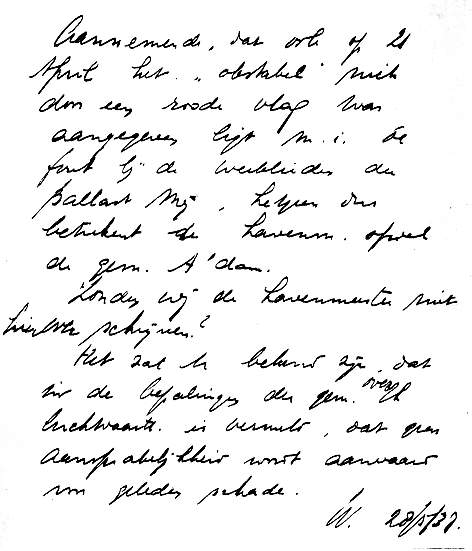 Aannemende, dat ook op 21
April het „obstakel" niet
door een roode vlag was
aangegeven ligt m.i. de
fout bij de werkleider der
Ballast Mij, hetgeen dus
beteekent de havenm. ofwel
de gem. A'dam.
Zouden wij de havenmeester niet
hierover schrijven?
Het zal U bekend zijn, dat
in de bepalingen der gem. over
luchtvaartt. is vermeld, dat geen
aansprakelijkheid wordt aanvaard
van geleden schade.
W. 28/5/37.